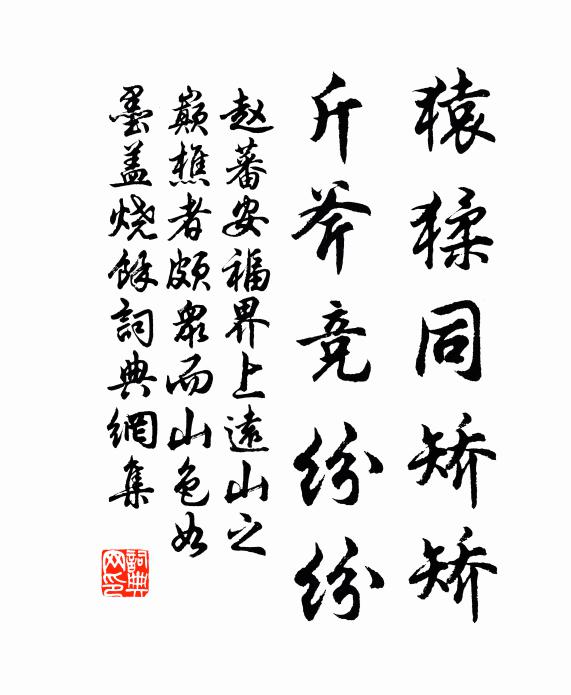 猿猱同矫矫
斤斧竞纷纷
赵蕃安福界上遠山之
巅樵者颇衆而山色如
墨盖烧餘詞典網集
詞典网印